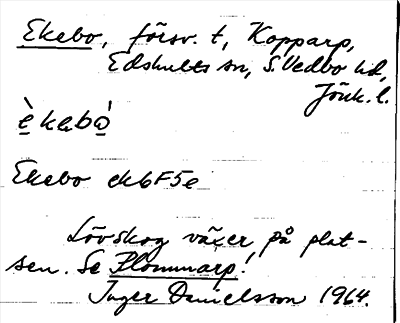 Ekebo, försv. t, Kopparp,
Edshults sn, S. Vedbo hd,
Jönk. l.
è̲kabò̲
Ekebo ek6F5e
Lövskog växer på plat-
sen. Se Plommarp!
Inger Danielsson 1964.